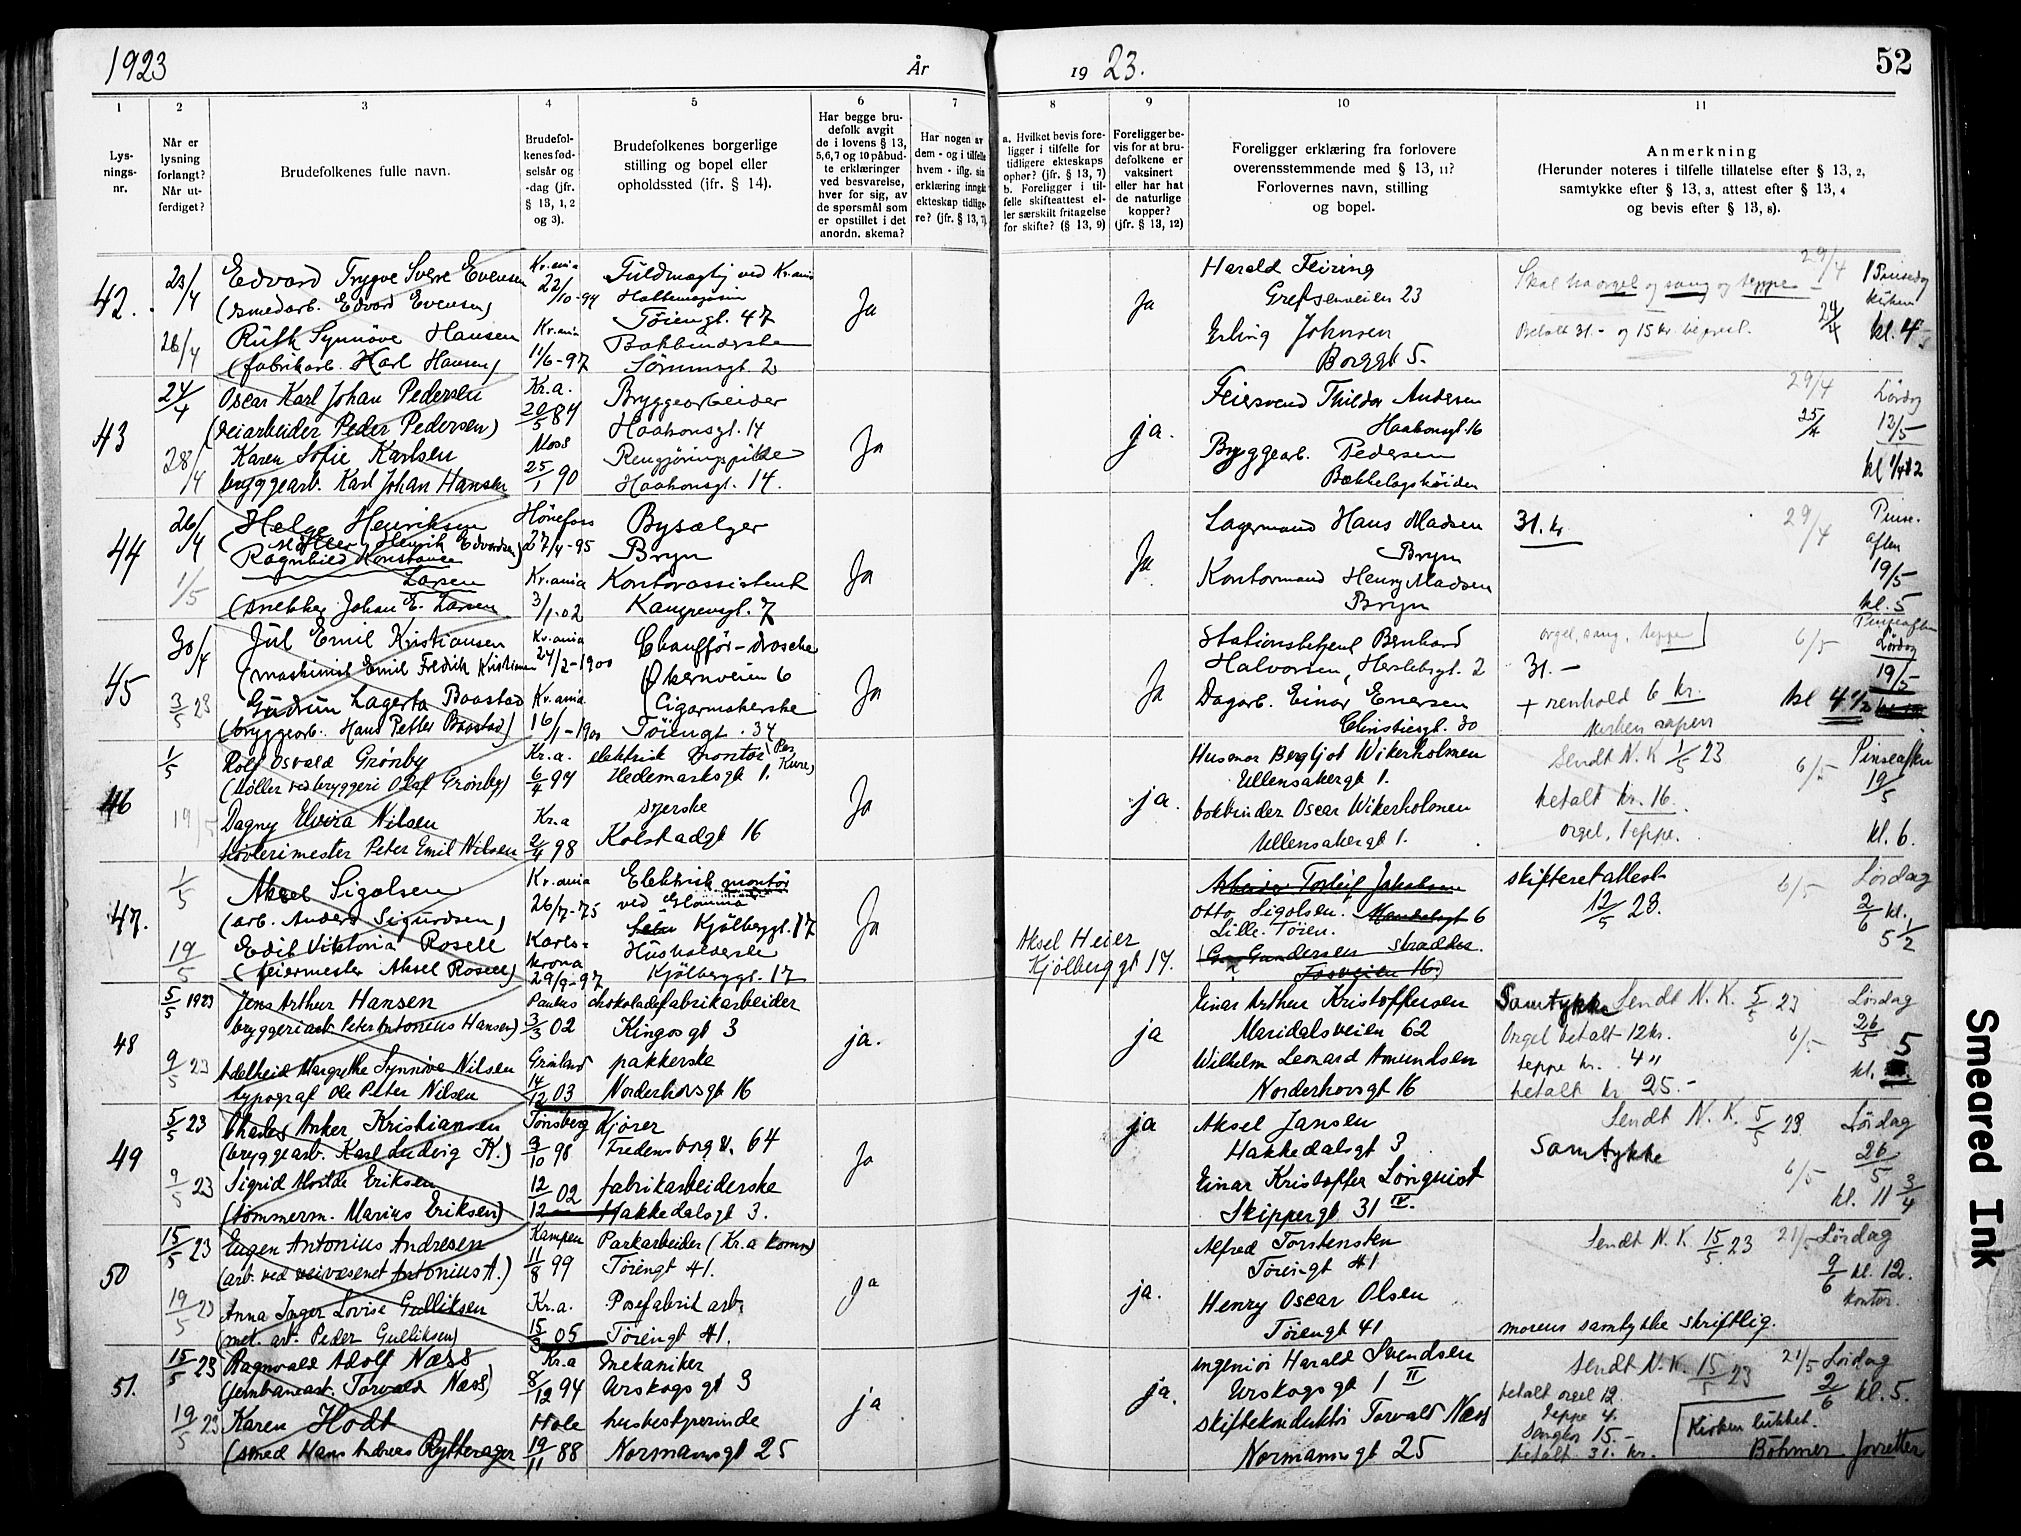 1923
År
19 23.
52
1
2
3
4
5
6
7
8
9
10
11
Lys-
nings-
nr.
Når er
lysning
forlangt?
Når ut-
ferdiget?
Brudefolkenes fulle navn.
Brudefol-
kenes fød-
selsår og
-dag (jfr.
§ 13, 1, 2
og 3).
Brudefolkenes borgerlige
stilling og bopel eller
opholdssted (ifr. § 14).
Har begge bru-
defolk avgit
de i lovens § 13,
5,6,7 og 10 påbud-
te erklæringer
ved besvarelse,
hver for sig, av
de spørsmål som
er opstillet i det
anordn. skema?
Har nogen av
dem - og i tilfelle
hvem - iflg. sin
erklæring inngåt
ekteskap tidlige-
re? (jfr. § 13, 7)
a. Hvilket bevis fore-
ligger i tilfelle for
tidligere ekteskaps
ophør? (jfr. § 13, 7)
b. Foreligger i til-
felle skifteattest el-
ler særskilt fritagelse
for skifte? (§ 13, 9)
Foreligger be-
vis for at bru-
defolkene er
vaksinert
eller har hat
de naturlige
kopper?
(jfr. § 13, 12)
Foreligger erklæring fra forlovere
overensstemmende med § 13, 11?
Forlovernes navn, stilling
og bopel.
Anmerkning
(Herunder noteres i tilfelle tillatelse efter § 13, 2,
samtykke efter § 13, 3, attest efter § 13, 4
og bevis efter § 13, 8).
42.
23/4
26/4
Edvard Trygve Sverre Evensen
(smedarb. Edvard Evensen)
Ruth Synnöve Hansen
(fabrikarb. Karl Hansen)
Kr.ania
22/10-94
Kr.ania
11/6-97
Fuldmægtig ved Kr.ania
Töiengt. 47
Bokbinderske
Sörumsgt. 2
Ja
Ja
Harald Feiring
Grefsenveien 23
Erling Johnsen
Borggt 5.
Skal ha orgel og sang og teppe
Betalt 31.- og 15 kr.
29/4
24/4
kl. 4
43
24/4
28/4
Oscar Karl Johan Pedersen
(veiarbeider Peder Pedersen)
Karen Sofie Karlsen
bryggearb. Karl Johan Hansen
Kr.a.
20/5 84
Moss
25/1 90
Bryggearbeider
Haakonsgt. 14
Rengjöringspike
Haakonsgt. 14.
Ja
ja.
Feiersvend Thildor Andersen
Haakonsgt. 16
Bryggearb. Pedersen
Bækkelagshöiden
29/4
25/4
Lördag
13/5
44
26/4
1/5
Helge Henriksen
(Möller Henrik Edvardsen)
Ragnhild Konstanse
Larsen
(snekker Johan E. Larsen
Hönefoss
27/4-95
Kr.ania
3/1.02
Bysælger
Bryn
Kontorassistent
Kampengt. 7
Ja
Ja
Lagermand Hans Madsen
Bryn
Kontormand Henry Madsen
Bryn
31. kr
29/4
Pinse-
aften
19/5
kl. 5
45
30/4
3/5 23
Jul Emil Kristiansen
(maskinist Emil Fredrik Kristiansen
Gudrun Lagerta Baastad
(bryggearb. Hans Petter Baastad)
Kr.ania
24/2-1900
Kr.ania
16/1-1900
Chaufför-drosche
Økernveien 6
Cigarmakerske
Töiengt. 34
Ja
Ja
Stationsbetjent Bernhard
Halvorsen, Herslebsgt. 2
Dagarb. Einar Enersen
Christiesgt. 30
orgel, sang, teppe
31.-
+ renhold 6 kr.
kirken aapen
6/5
Pinseaften
Lördag
19/5
kl 4 1/2
46
1/5
19/5
Rolf Osvald Grönby
(Møller ved bryggeri Olaf Grönby)
Dagny Elvira Nilsen
høvlerimester Peter Emil Nilsen
Kr.a.
6/4 94
Kr.a
2/4 98
elektrisk montör
Hedemarksgt 1.
syerske
Kolstadgt 16
Ja
ja.
Husmor Bergljot Wikerholmen
Ullensakergt 1.
bokbinder Oscar Wikerholmen
Ullensakergt 1.
Sendt N. K 1/5 23
betalt kr. 16.
orgel, Teppe.
6/5
Pinseaften
19/5
kl. 6.
47.
1/5
19/5
Aksel Sigolsen
(arb. Anders Sigurdsen)
Edit Viktoria Rosell
(feiermester Aksel Rosell)
Kr.ania
26/7-75
Karls-
krona
29/9-97
Elektrisk montör
ved Glommen
Kjölberggt. 17
Husholderske
Kjölberggt. 17
Ja
Aksel Heier
Kjølberggt 17.
Arbeider Torleif Jakobsen
Otto Sigolsen. 6
Lille-Töien.
Gundersen skrædder
Fossveien 16)
skifteretattest
12/5 23.
6/5
Lördag
2/6 kl.
5 1/2
48
5/5 1923
9/5 23
Jens Arthur Hansen
bryggeriarb Peter Antonius Hansen)
Adelheid Margrethe Synnöve Nilsen
typograf Ole Peter Nilsen
Paulus
3/3 02
Grönland
14/12 03
chokoladefabrikarbeider
Kingosgt 3
pakkerske
Norderhovsgt 16
ja.
ja
Einar Arthur Kristoffersen
Maridalsveien 62
Wilhelm Leonard Amundsen
Norderhovsgt 16
Samtykke Sendt N. K. 5/5 23
Orgel betalt 12 kr.
teppe kr. 4 "
betalt kr 25.-
6/5
Lördag
26/5
5
kl.
49
5/5 23
9/5 23
Charles Anker Kristiansen
(bryggearb. Karl Ludvig K.)
Sigrid Alvilde Eriksen
(tömmerm. Marius Eriksen)
Tönsberg
9/10 98
12/12 02
Kjörer
Fredensborgv. 64
fabrikarbeiderske
Hakkedalsgt 3.
Ja
ja
Aksel Jansen
Hakkedalsgt 3
Einar Kristoffer Lönquist
Skippergt 31 IV.
Sendt N. K. 5/5 23
Samtykke
6/5
Lördag
26/5
kl. 11 3/4
50
15/5 23
19/5 23
Eugen Antonius Andresen
(arb. ved veivæsenet Antonius A.)
Anna Inger Lovise Gulliksen
(met. arb. Peder Gulliksen)
Kampen
11/8 99
Kr.a.
15/3 05
Parkarbeider (Kr.a komm)
Töiengt 41.
Posefabrik arb.
Töiengt 41.
ja
ja.
Alfred Torstensten
Töiengt 41
Henry Oscar Olsen
Töiengt 41
Sendt N. K. 15/5 23
morens samtykke skriftlig.
21/5
Lördag
9/6 kl. 12.
kontor.
51.
15/5 23
19/5 23
Ragnvald Adolf Næss
(jernbanearb. Torvald Næss)
Karen Hodt
(smed Hans Andreas Rytterager
Kr.a
8/12 94
Hole
19/11 88
mekaniker
Urskogsgt 3
husbestyrerinde
Normannsgt 25
ja
ja.
ingeniör Harald Svendsen
Urskogsgt 1 II
skiftekonduktör Torvald Næss
Normannsgt 25
Sendt N. K. 15/5 23
betalt orgel 12.
teppe 4.
Sangkor 15.-
betalt 31. kr.
Kirken lukket.
Böhmer forretter
21/5
Lördag
2/6 kl. 5.
Smeared Ink